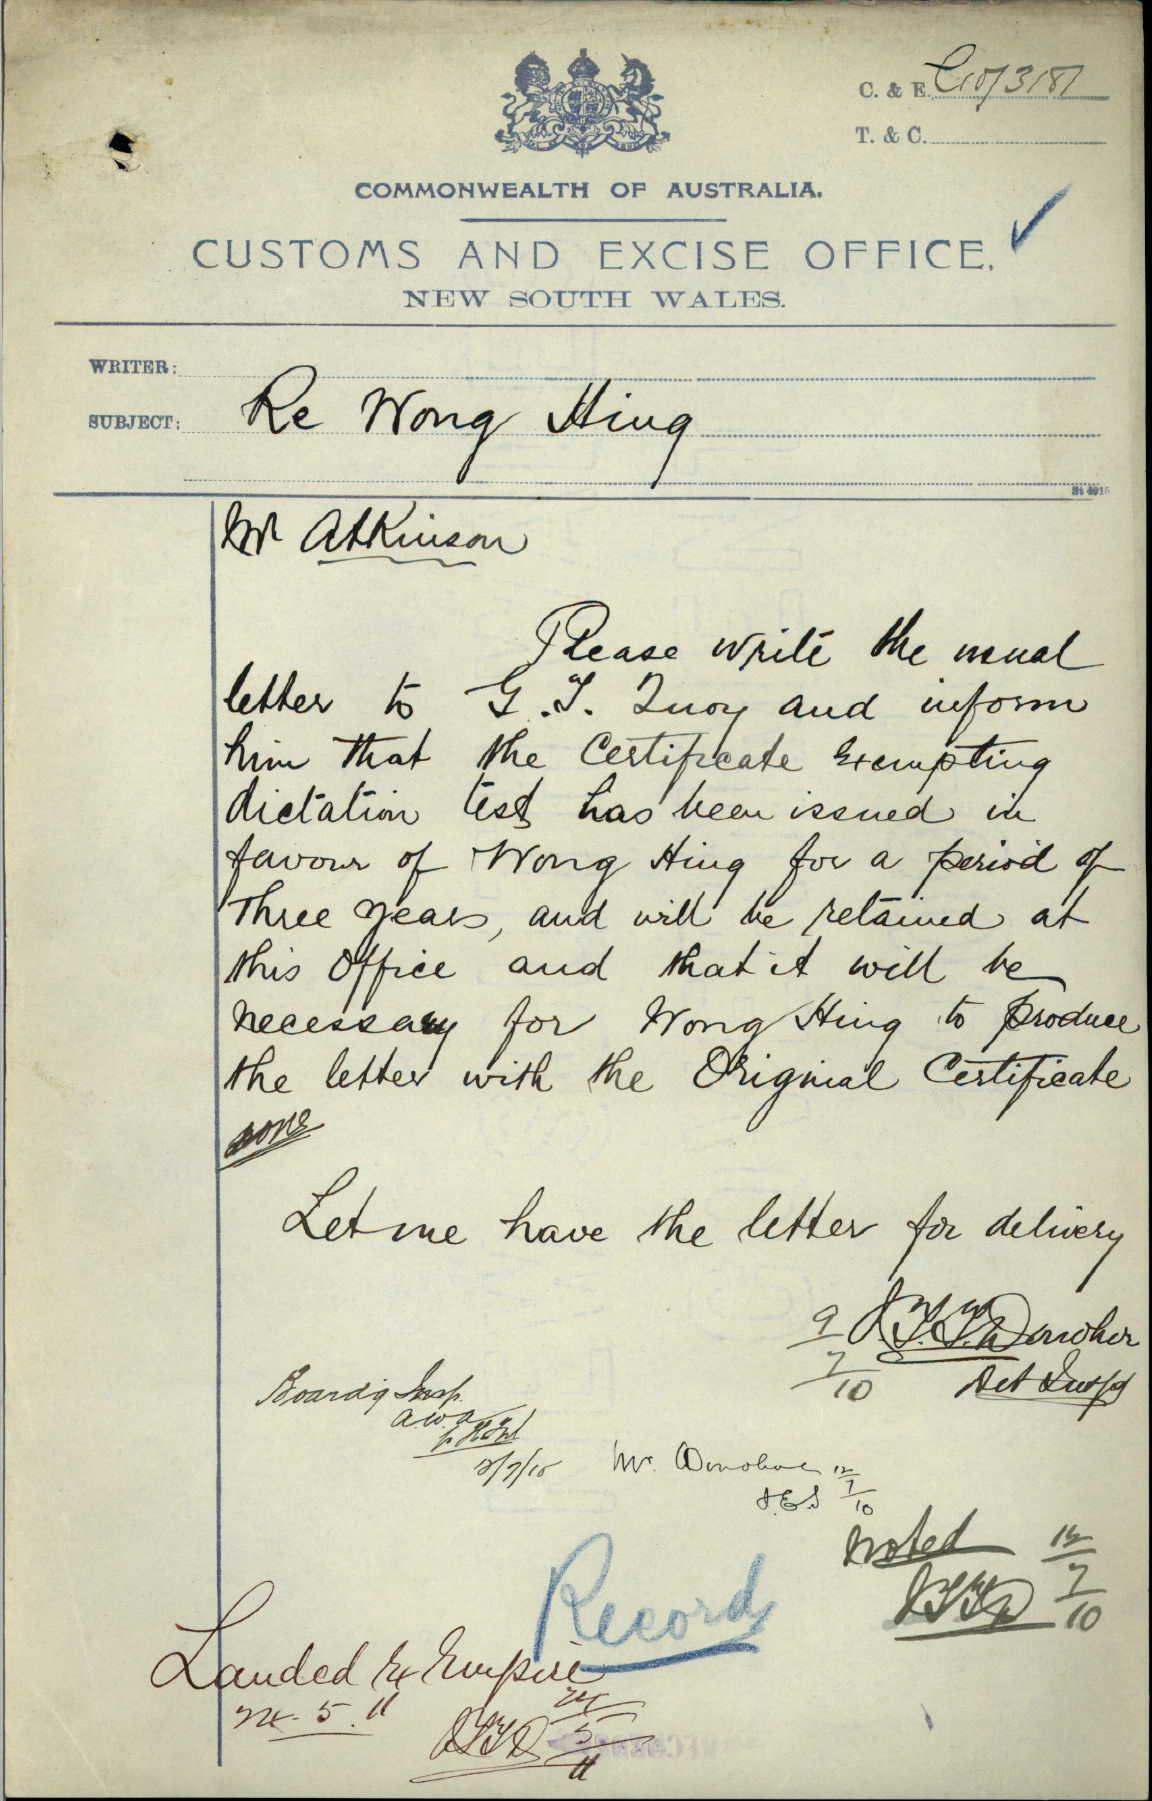 C. & E. C10/3181
T. & C.
COMMONWEALTH OF AUSTRALIA.
CUSTOMS AND EXCISE OFFICE.
NEW SOUTH WALES.
WRITER:
SUBJECT: Re Wong Hing
Mr Atkinson
Please write the usual
letter to G. T. Quoy and inform
him that the Certificate Exempting
dictation test has been issued in
favour of Wong Hing for a period of
Three years, and will be retained at
this Office and that it will be
necessary for Wong Hing to produce
the letter with the Original Certificate
Let me have the letter for delivery
J.T.T. Donohoe
9/7/10 Det Insp
Board'g Insp.
Mr. Donohoe 12/7/10
Noted 12/7/10
JTTD
Record
Landed Ex Empire
24.5.11
JTTD 24/5/11